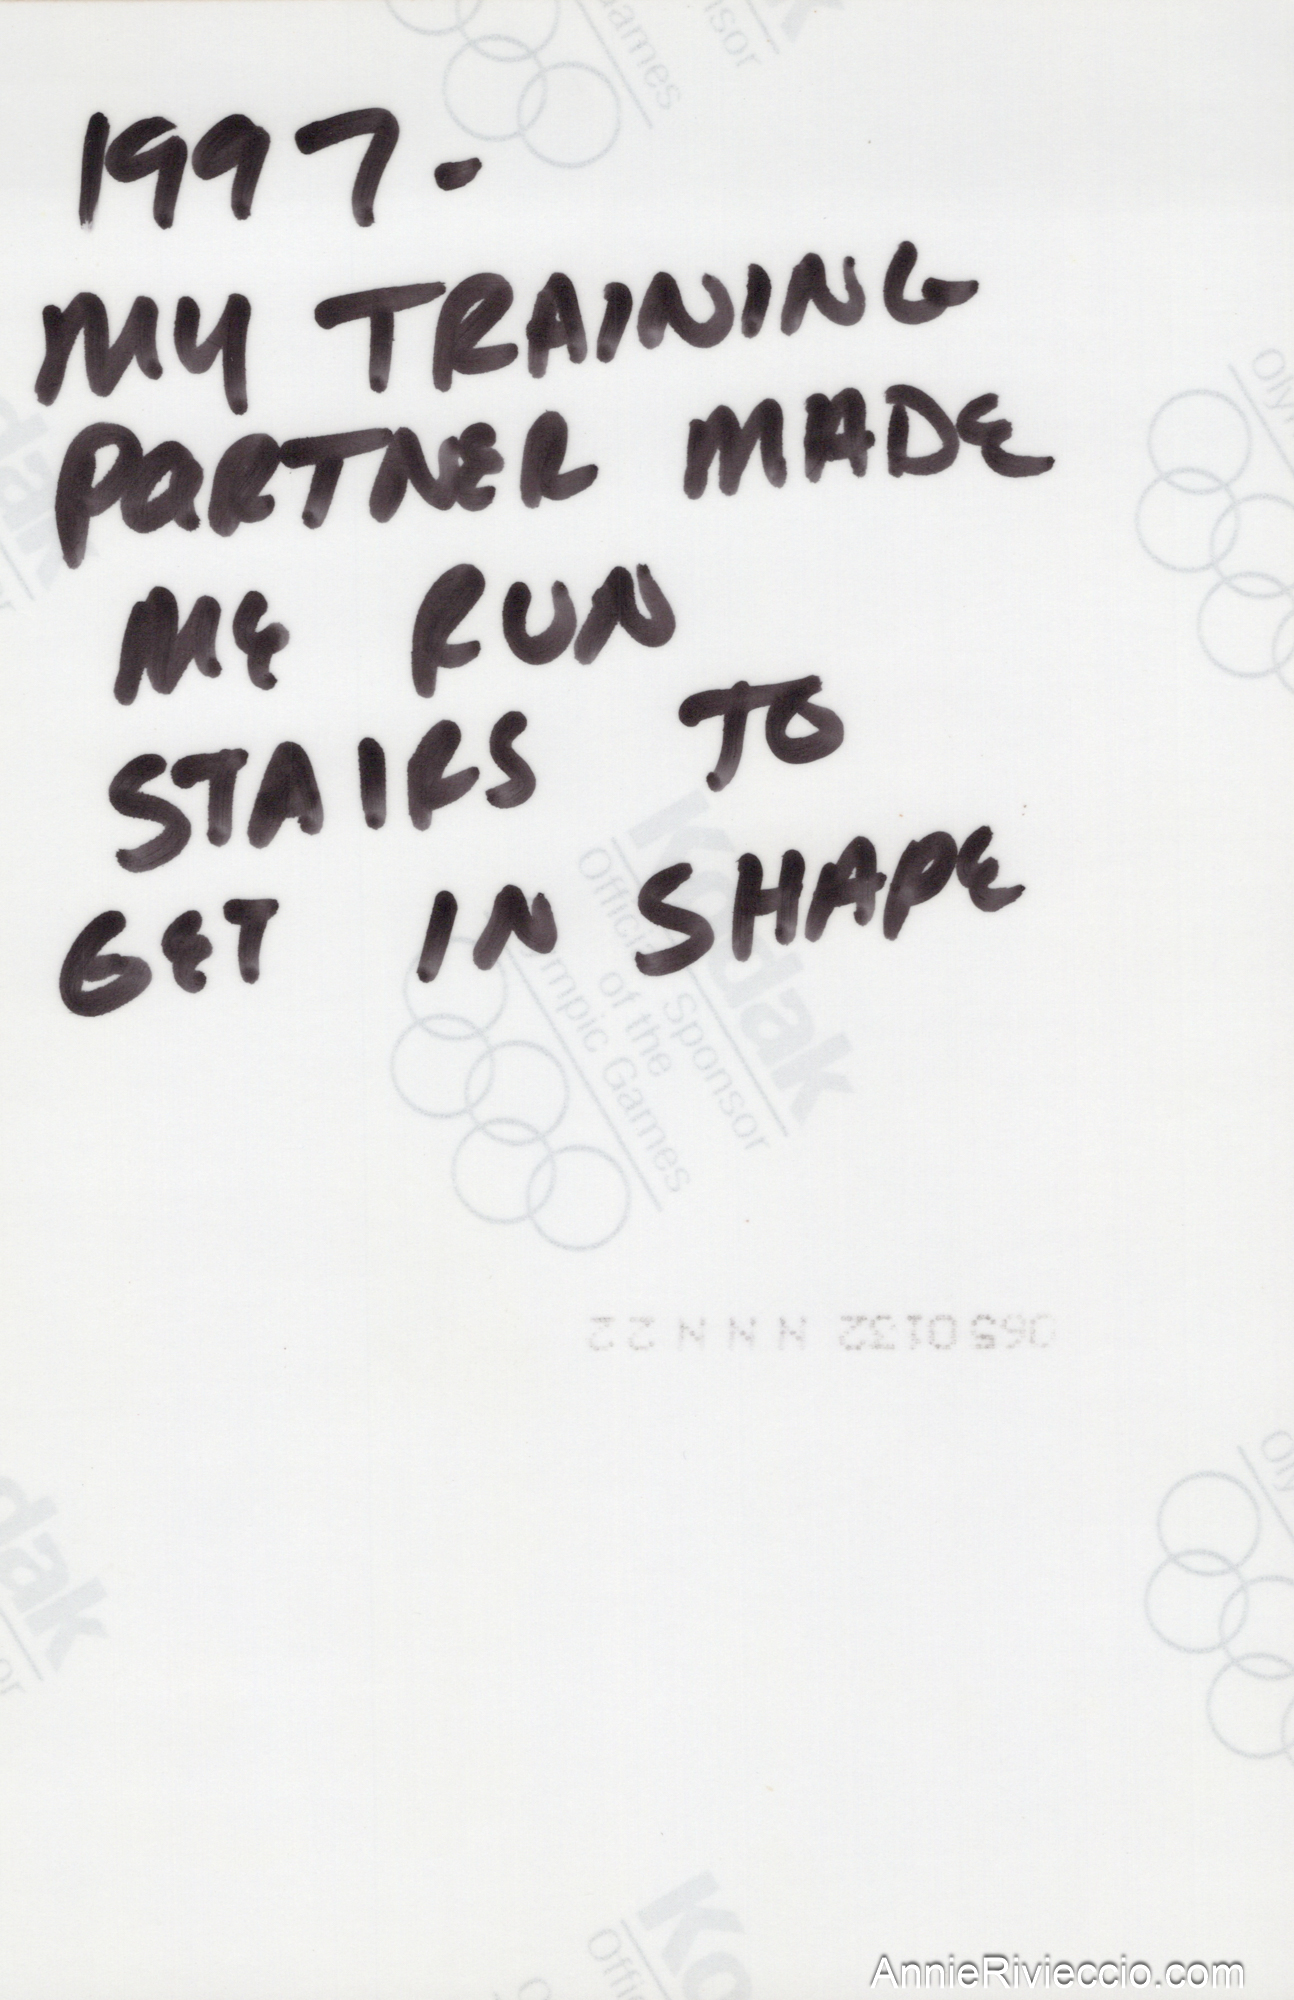 1997-
MY TRAINING
PARTNER MADE
ME RUN
STAIRS TO
GET IN SHAPE
Kodak
Official Sponsor
of the
Olympic Games
065 0132 N N N 22
AnnieRivieccio.com